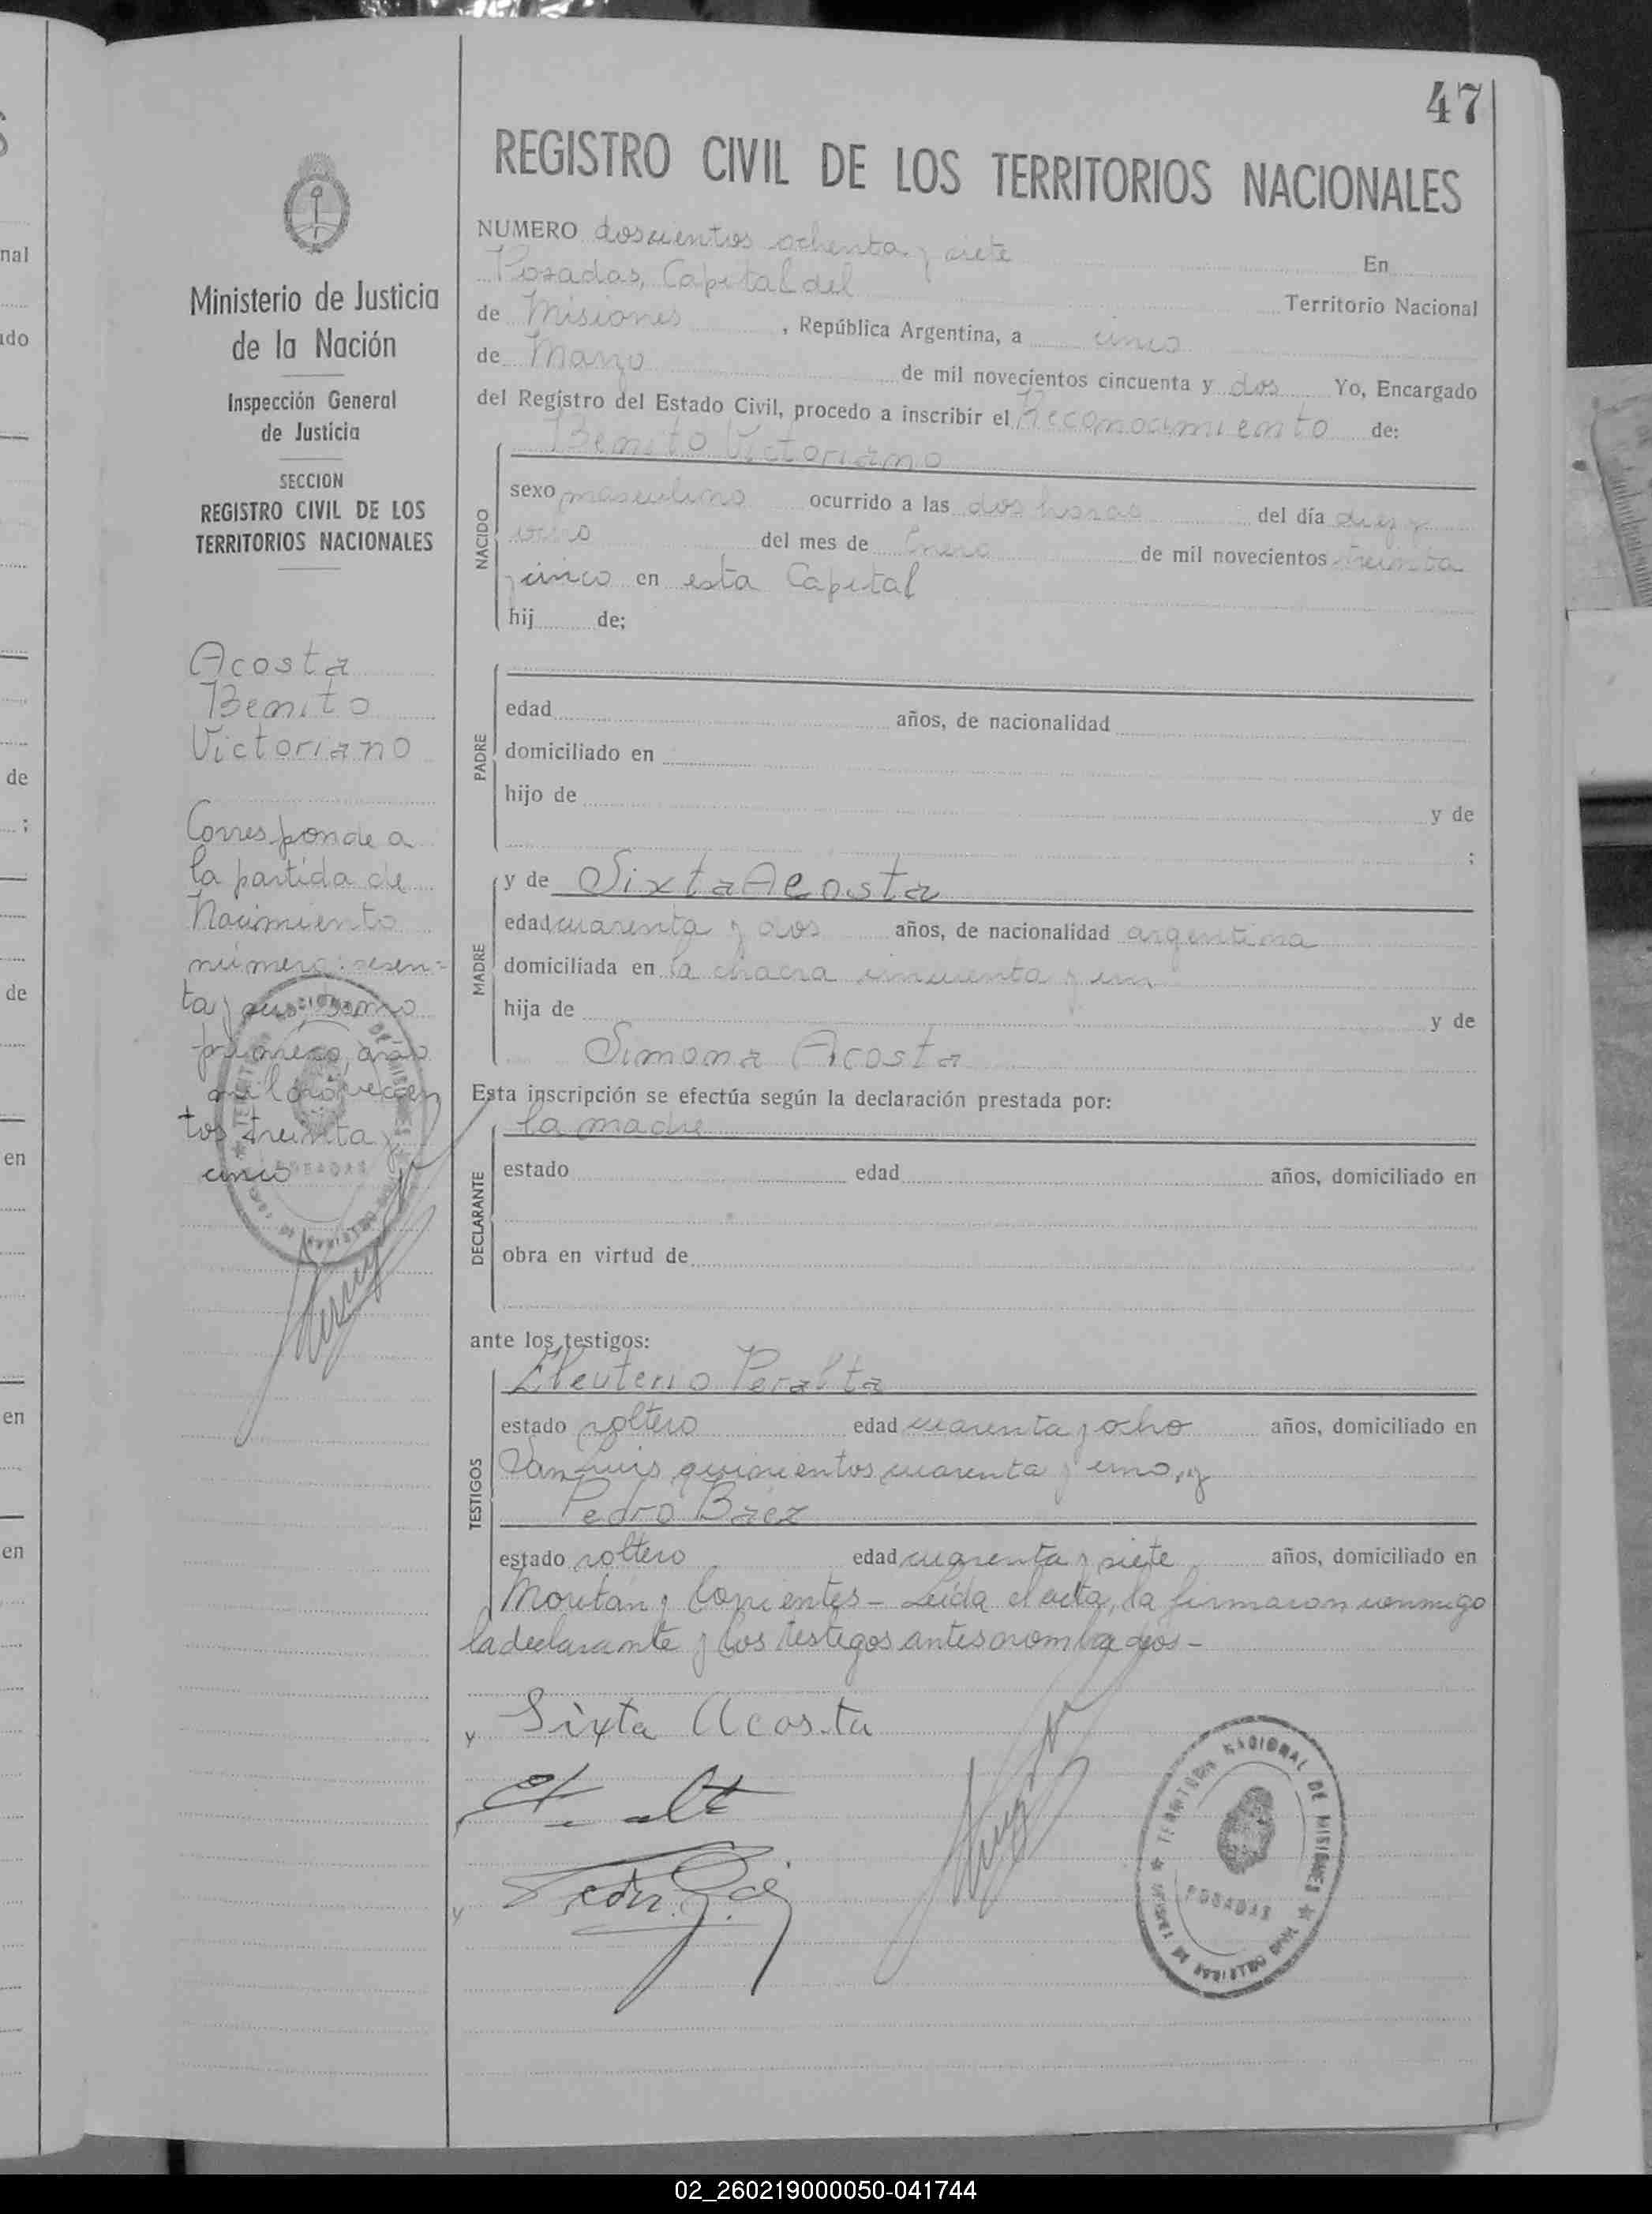 47
REGISTRO CIVIL DE LOS TERRITORIOS NACIONALES
Ministerio de Justicia
de la Nación
Inspección General
de Justicia
SECCION
REGISTRO CIVIL DE LOS
TERRITORIOS NACIONALES
Acosta
Benito
Victoriano
Corresponde a
la partida de
Nacimiento
número: sesen-
ta y tomo
primero, año
mil novecien
tos treinta y
cinco
NUMERO doscientos ochenta y siete En
Posadas, Capital del Territorio Nacional
de Misiones, República Argentina, a cinco
de Marzo de mil novecientos cincuenta y dos Yo, Encargado
del Registro del Estado Civil, procedo a inscribir el Reconocimiento de:
Benito Victoriano
NACIDO
sexo masculino ocurrido a las dos horas del día diez y
del mes de Enero de mil novecientos treinta
y cinco en esta Capital
hij de;
PADRE
edad años, de nacionalidad
domiciliado en
hijo de y de
;
MADRE
y de Sixta Acosta
edad cuarenta y dos años, de nacionalidad argentina
domiciliada en la chacra cincuenta y un
hija de y de
Simona Acosta
Esta inscripción se efectúa según la declaración prestada por:
la madre
DECLARANTE
estado edad años, domiciliado en
obra en virtud de
ante los testigos:
TESTIGOS
Eleuterio Peralta
estado soltero edad cuarenta y ocho años, domiciliado en
San Luis quinientos cuarenta y uno, y
Pedro Báez
estado soltero edad cuarenta y siete años, domiciliado en
Moritán y Corrientes - Leída el acta, la firmaron conmigo
la declarante y los testigos antes nombrados -
Sixta Acosta
TERRITORIO NACIONAL DE MISIONES
POSADAS
nal
ido
de
;
de
en
en
en
02_260219000050-041744